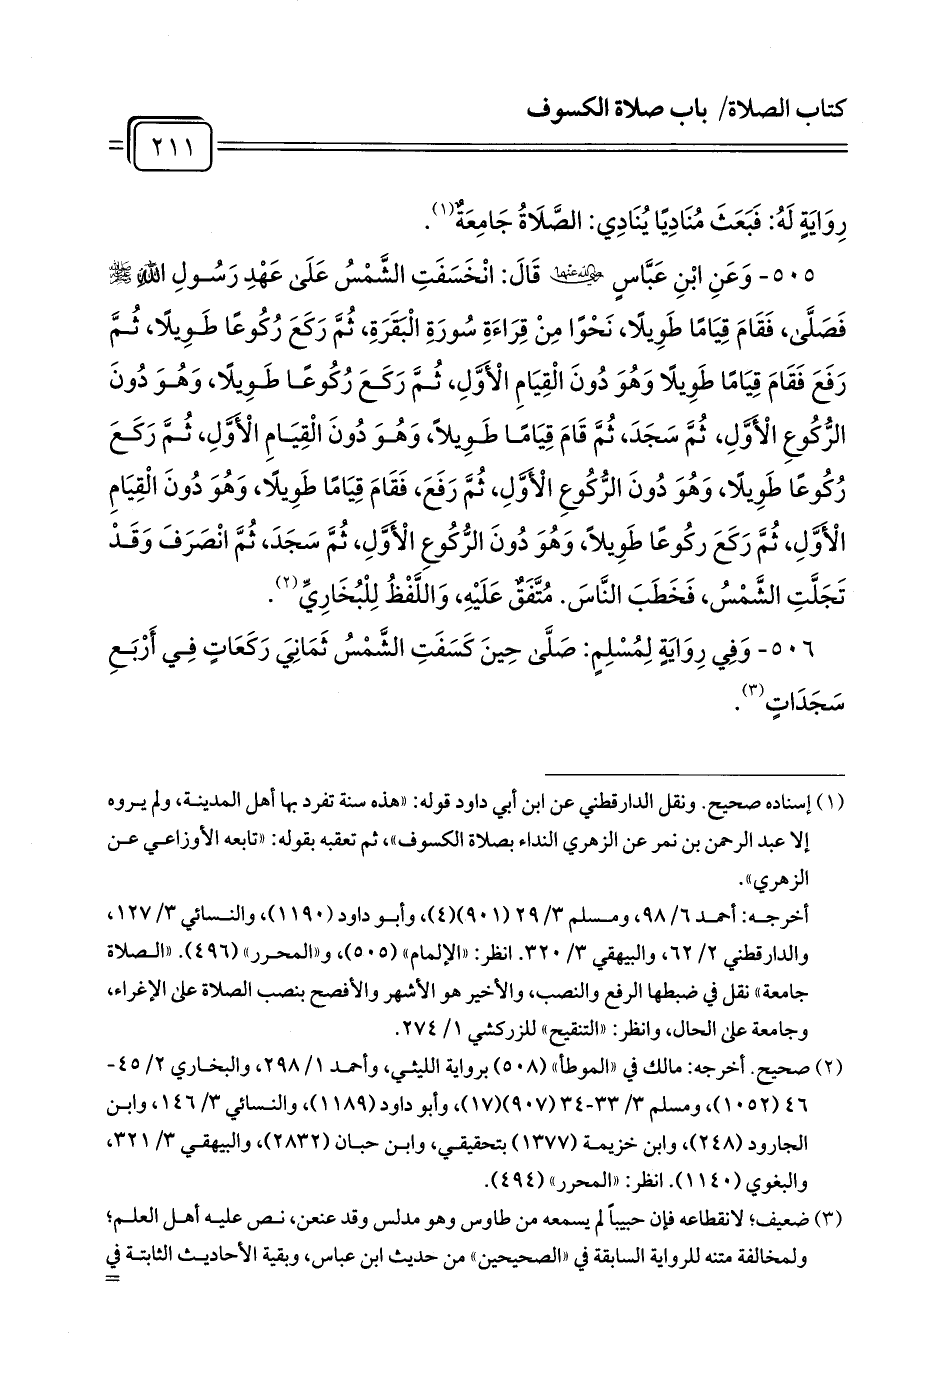 كتاب الصلاة/ باب صلاة الكسوف
٢١١
رِوَايَةٍ لَهُ: فَبَعَثَ مُنَادِيًا يُنَادِي: الصَّلَاةُ جَامِعَةٌ(١).
٥٠٥- وَعَنِ ابْنِ عَبَّاسٍ رضي الله عنهما قَالَ: انْخَسَفَتِ الشَّمْسُ عَلَى عَهْدِ رَسُولِ اللهِ ﷺ
فَصَلَّى، فَقَامَ قِيَامًا طَوِيلًا، نَحْوًا مِنْ قِرَاءَةِ سُورَةِ الْبَقَرَةِ، ثُمَّ رَكَعَ رُكُوعًا طَوِيلًا، ثُمَّ
رَفَعَ فَقَامَ قِيَامًا طَوِيلًا وَهُوَ دُونَ الْقِيَامِ الْأَوَّلِ، ثُمَّ رَكَعَ رُكُوعًا طَوِيلًا، وَهُوَ دُونَ
الرُّكُوعِ الْأَوَّلِ، ثُمَّ سَجَدَ، ثُمَّ قَامَ قِيَامًا طَوِيلاً، وَهُوَ دُونَ الْقِيَامِ الْأَوَّلِ، ثُمَّ رَكَعَ
رُكُوعًا طَوِيلًا، وَهُوَ دُونَ الرُّكُوعِ الْأَوَّلِ، ثُمَّ رَفَعَ، فَقَامَ قِيَامًا طَوِيلًا، وَهُوَ دُونَ الْقِيَامِ
الْأَوَّلِ، ثُمَّ رَكَعَ ركُوعًا طَوِيلاً، وَهُوَ دُونَ الرُّكُوعِ الْأَوَّلِ، ثُمَّ سَجَدَ، ثُمَّ انْصَرَفَ وَقَدْ
تَجَلَّتِ الشَّمْسُ، فَخَطَبَ النَّاسَ. مُتَّفَقٌ عَلَيْهِ، وَاللَّفْظُ لِلْبُخَارِيِّ(٢).
٥٠٦- وَفِي رِوَايَةٍ لِمُسْلِمٍ: صَلَّى حِينَ كَسَفَتِ الشَّمْسُ ثَمَانِيَ رَكَعَاتٍ فِي أَرْبَعِ
سَجَدَاتٍ(٣).
(١) إسناده صحيح. ونقل الدارقطني عن ابن أبي داود قوله: «هذه سنة تفرد بها أهل المدينة، ولم يروه
إلا عبد الرحمن بن نمر عن الزهري النداء بصلاة الكسوف»، ثم تعقبه بقوله: «تابعه الأوزاعي عن
الزهري».
أخرجه: أحمد ٦/ ٩٨، ومسلم ٣/ ٢٩ (٩٠١)(٤)، وأبو داود (١١٩٠)، والنسائي ٣/ ١٢٧،
والدارقطني ٢/ ٦٢، والبيهقي ٣/ ٣٢٠. انظر: «الإلمام» (٥٠٥)، و«المحرر» (٤٩٦). «الصلاة
جامعة» نقل في ضبطها الرفع والنصب، والأخير هو الأشهر والأفصح بنصب الصلاة على الإغراء،
وجامعة على الحال، وانظر: «التنقيح» للزركشي ١/ ٢٧٤.
(٢) صحيح. أخرجه: مالك في «الموطأ» (٥٠٨) برواية الليثي، وأحمد ١/ ٢٩٨، والبخاري ٢/ ٤٥-
٤٦ (١٠٥٢)، ومسلم ٣/ ٣٣-٣٤ (٩٠٧)(١٧)، وأبو داود (١١٨٩)، والنسائي ٣/ ١٤٦، وابن
الجارود (٢٤٨)، وابن خزيمة (١٣٧٧) بتحقيقي، وابن حبان (٢٨٣٢)، والبيهقي ٣/ ٣٢١،
والبغوي (١١٤٠). انظر: «المحرر» (٤٩٤).
(٣) ضعيف؛ لانقطاعه فإن حبيباً لم يسمعه من طاوس وهو مدلس وقد عنعن، نص عليه أهل العلم؛
ولمخالفة متنه للرواية السابقة في «الصحيحين» من حديث ابن عباس، وبقية الأحاديث الثابتة في
=